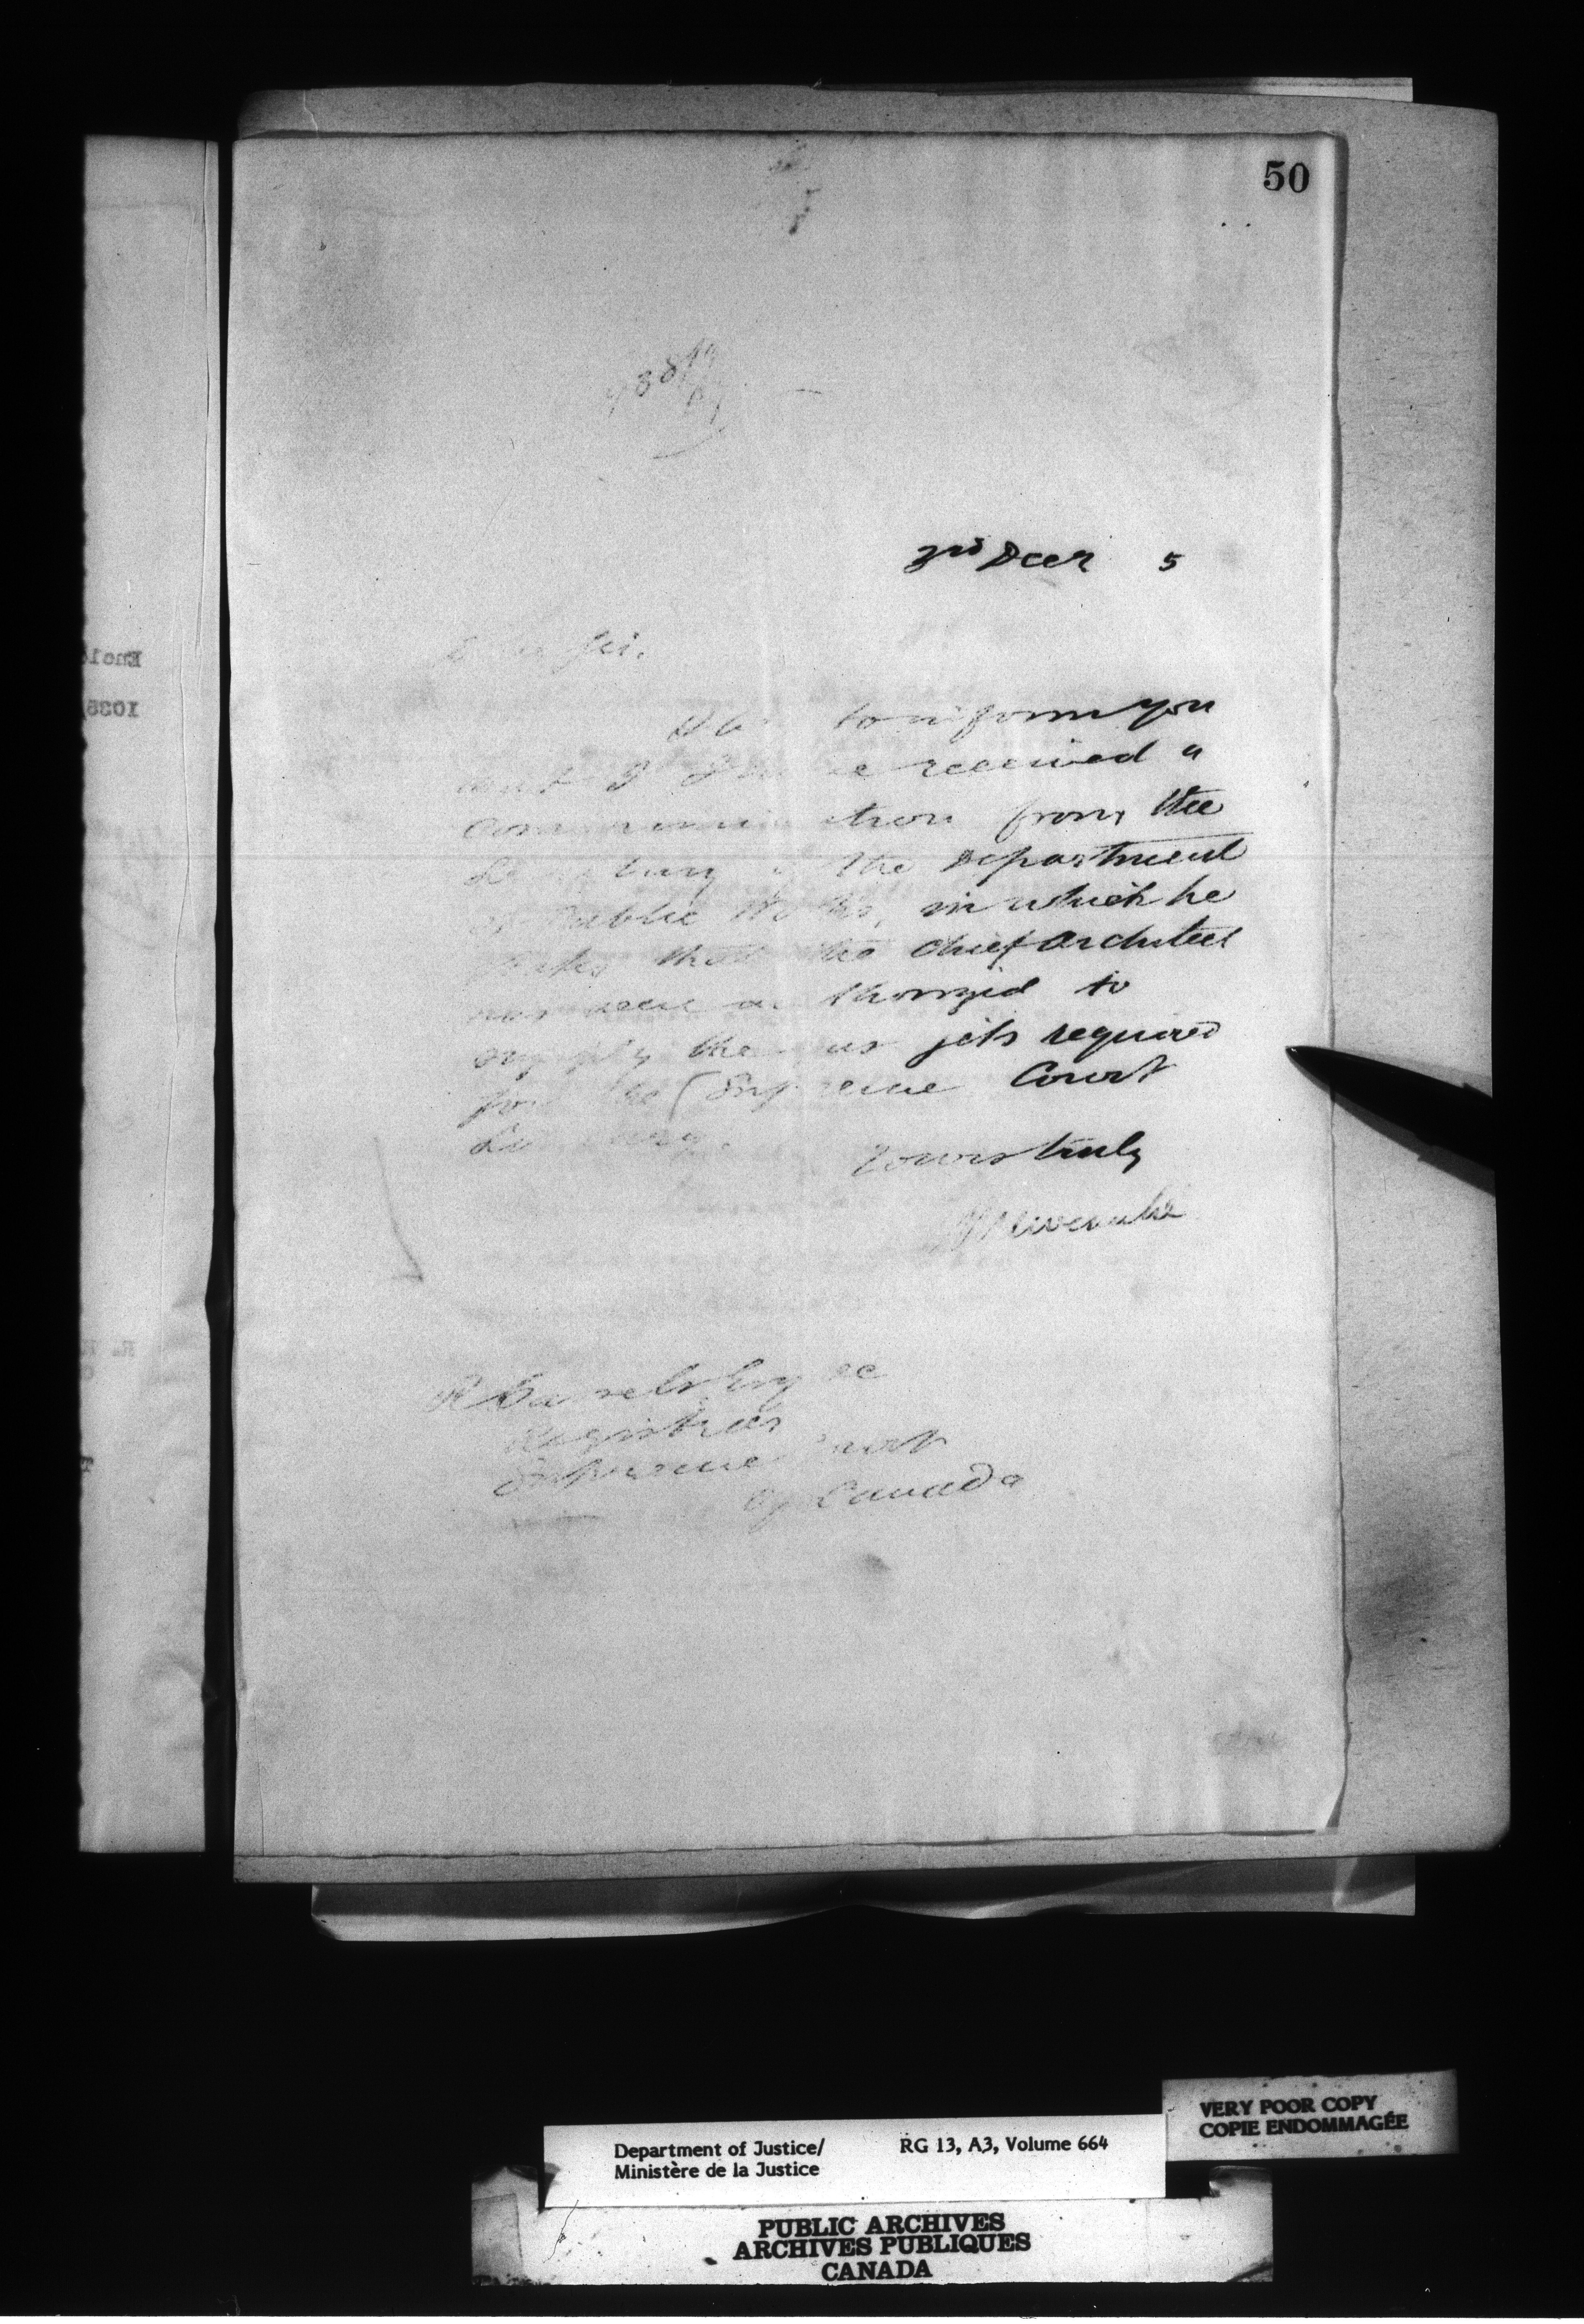 50
3rd Decr 5
Sir.
to inform you
I received a
communication from the
the Department
of Public Works, in which he
states that the Chief Architect
has been authorized to
supply the gas jets required
for the Supreme Court
Library.
Yours truly
Registrar
Supreme Court
of Canada
Encl
1035
Department of Justice/ RG 13, A3, Volume 664
Ministère de la Justice
VERY POOR COPY
COPIE ENDOMMAGÉE
PUBLIC ARCHIVES
ARCHIVES PUBLIQUES
CANADA